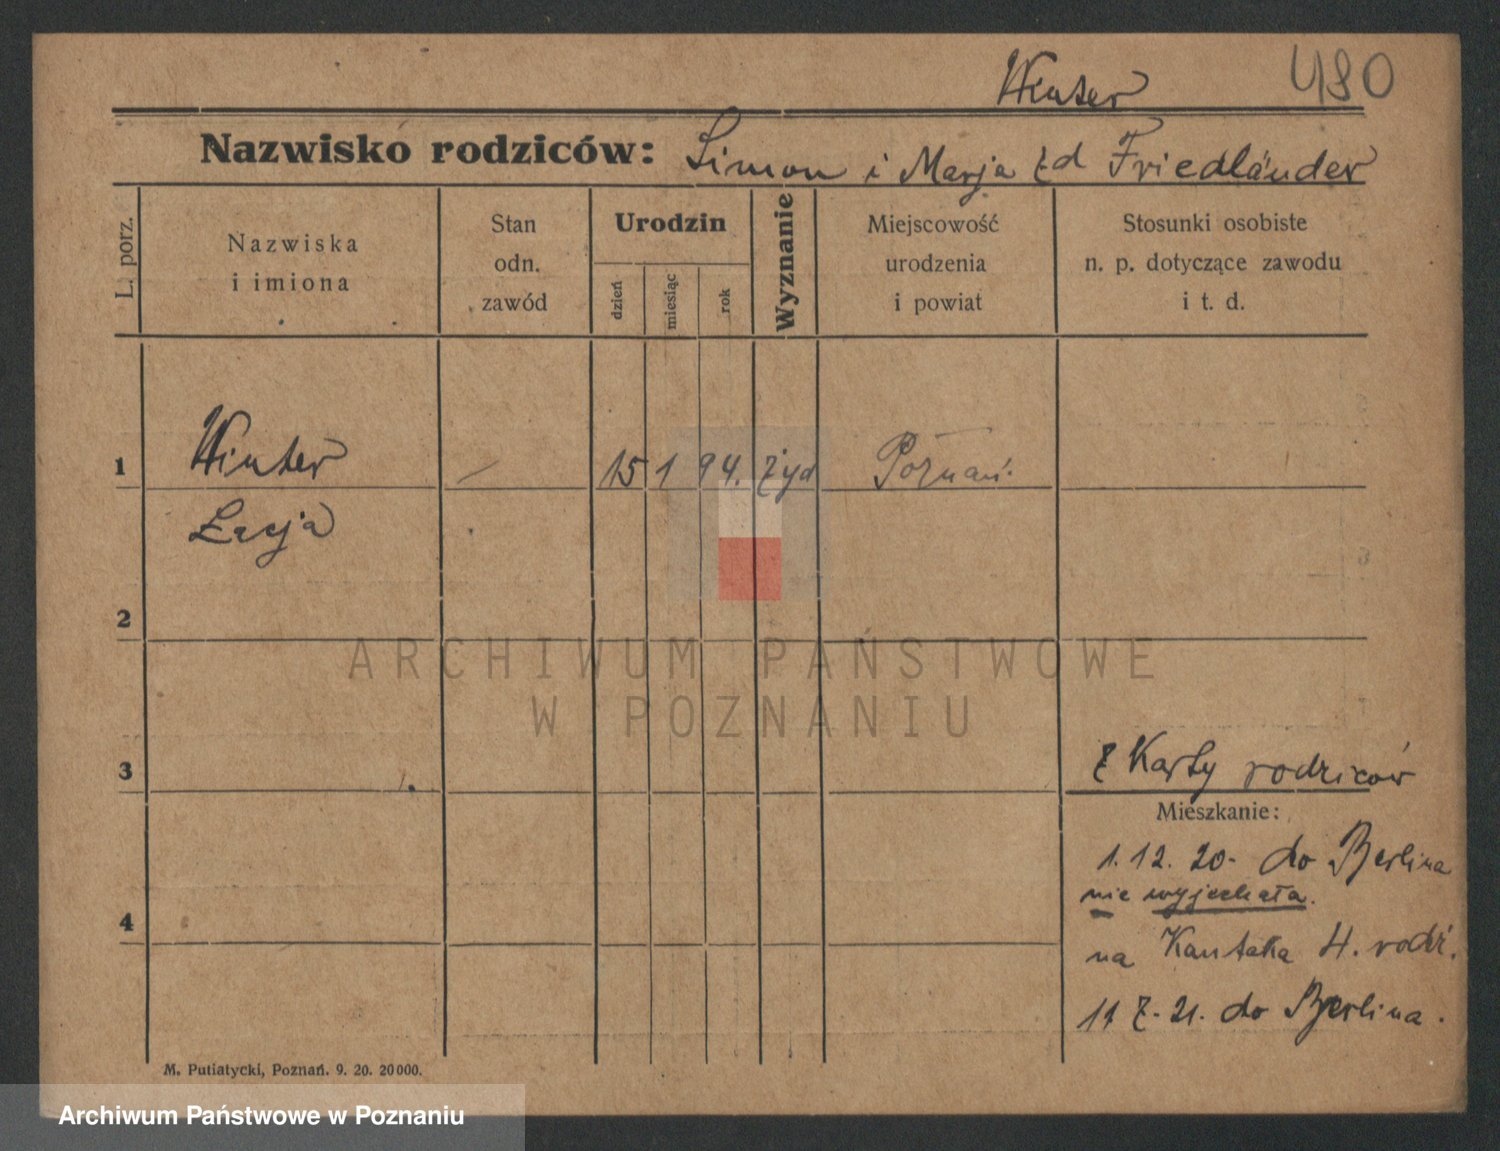 480
Winter
Nazwisko rodziców: Simon i Marja zd Friedländer
L. porz.
Nazwiska
i imiona
Stan
odn.
zawód
Urodzin
dzień
miesiąc
rok
Wyznanie
Miejscowość
urodzenia
i powiat
Stosunki osobiste
n. p. dotyczące zawodu
i t. d.
1 Winter 15 1 94. żyd Poznań.
Łucja
2
3
z Karty rodziców
Mieszkanie:
1.12.20. do Berlina
nie wyjechała.
4
na Kantaka 4. rodź.
11 7. 21. do Berlina.
M. Putiatycki, Poznań. 9. 20. 20000.
ARCHIWUM PAŃSTWOWE
W POZNANIU
Archiwum Państwowe w Poznaniu